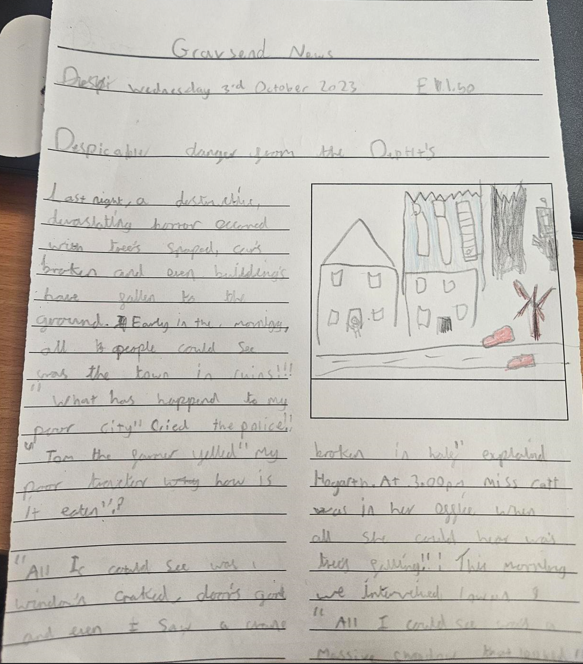 Gravsend News
Wednesday 3rd October 2023 £1.50
Despicable danger from the Depht's
Last night, a
devastating horror occured
with tree's snaped, car's
broken and even building's
have fallen to the
ground. Early in the morning,
all people could see
was the town in ruins!!!
"What has happend to my
poor city" Cried the police!!
"Tom the farmer yelled" My
poor how is
it eaten"?
"All I could see was
window's craked, door's
and even I saw a crane
broken in half" explained
Hogarth. At 3.00pm miss
was in her when
all she could hear was
tree's falling!! This morning
we
"All I could see was a
Massive shadow that